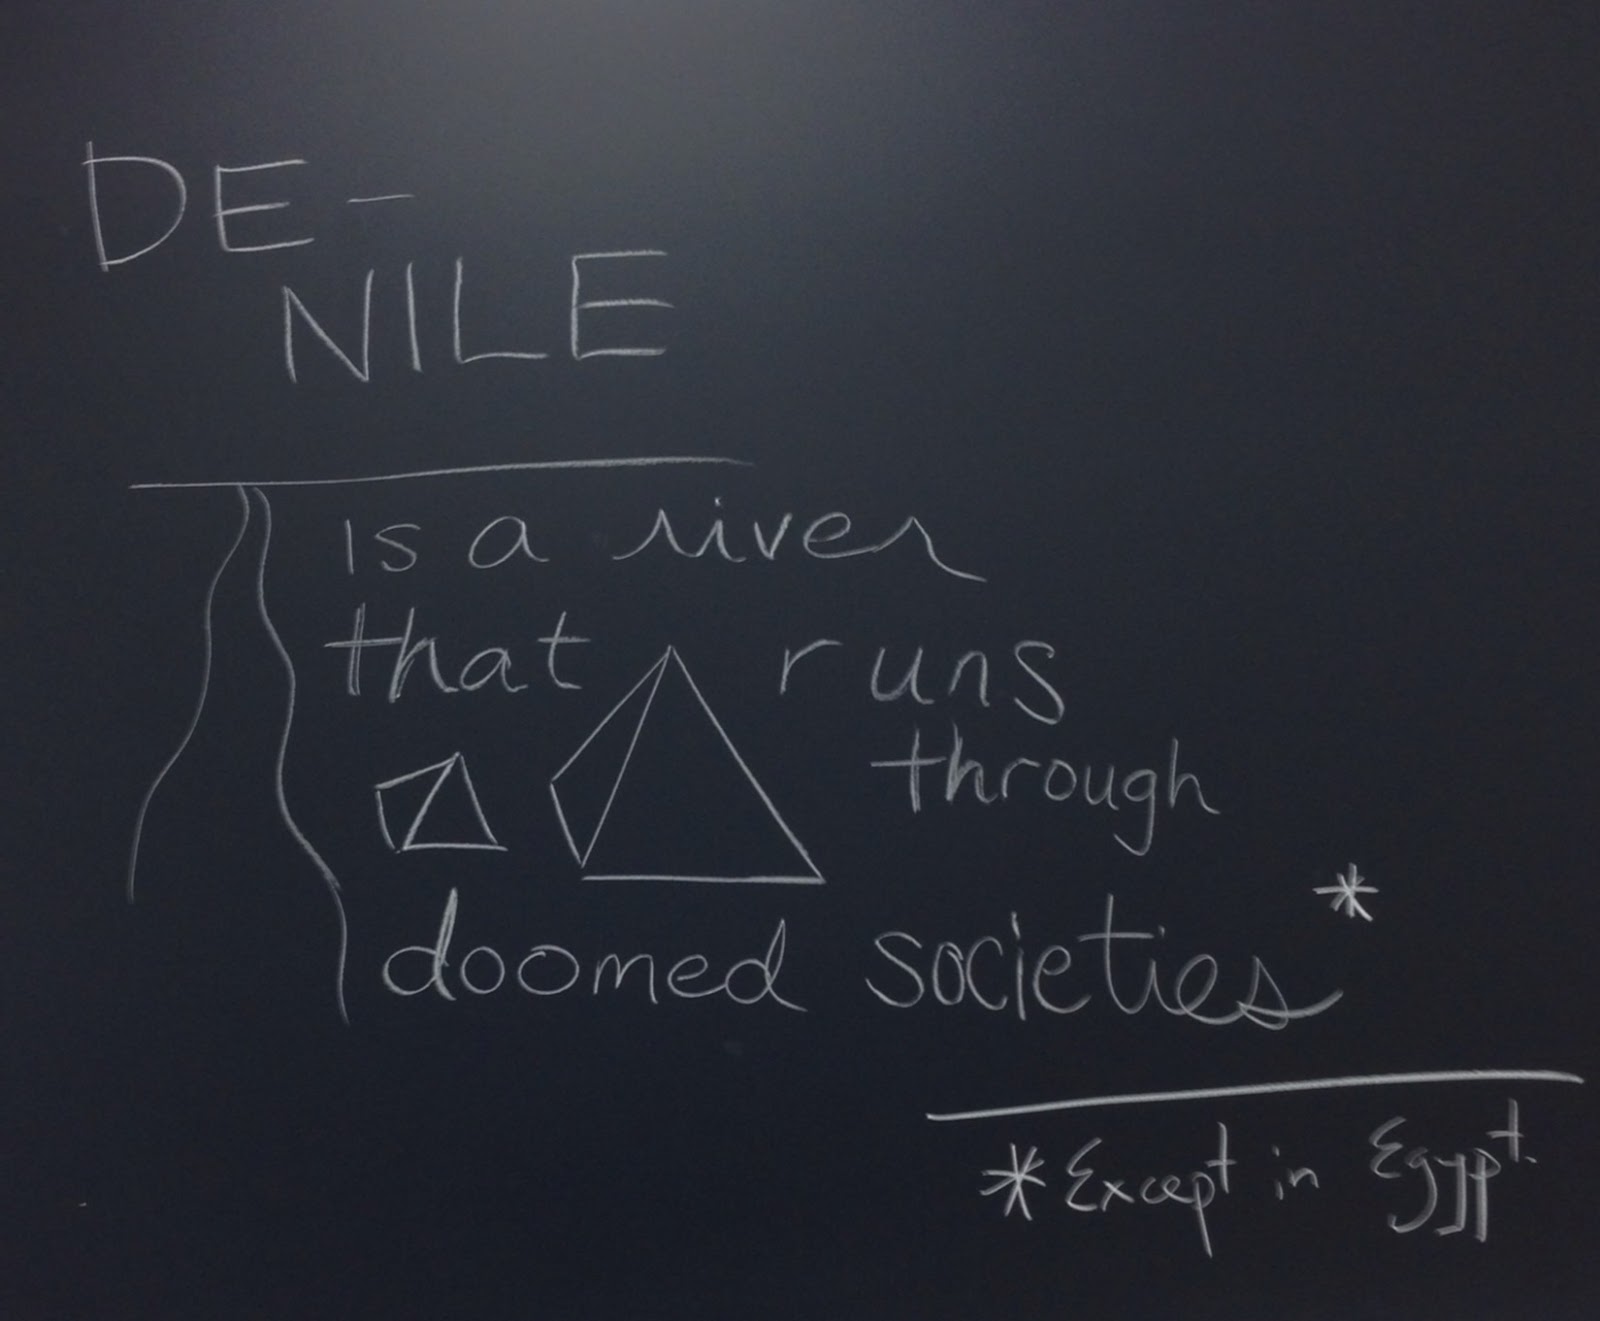 DE-
NILE
is a river
that runs
through
doomed societies*
*Except in Egypt.